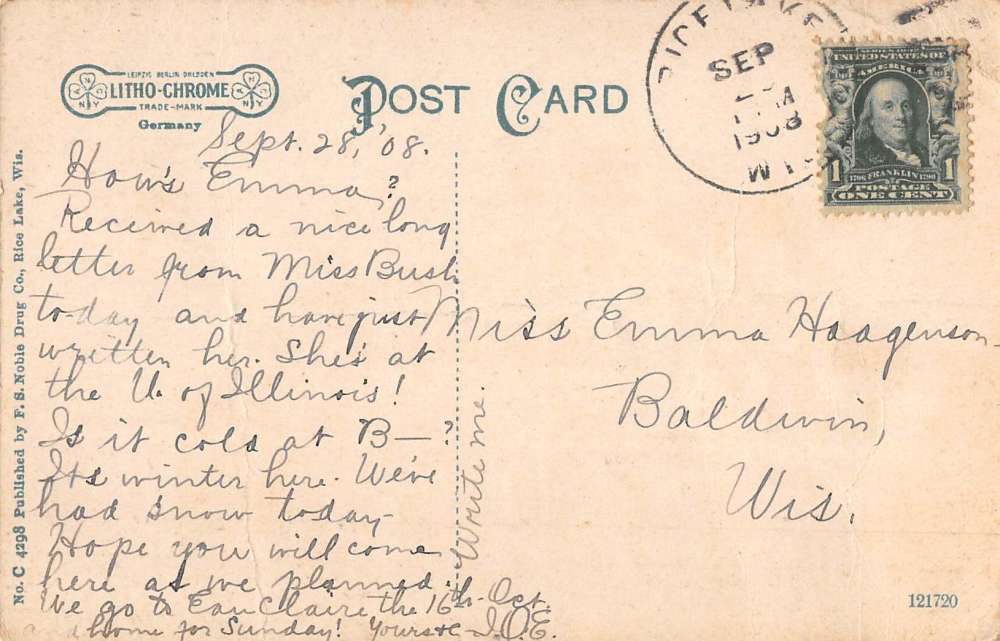 LEIPZIG BERLIN DRESDEN
LITHO-CHROME
TRADE-MARK
Germany
POST CARD
RICE LAKE
SEP
1908
WIS
UNITED STATES OF
AMERICA
1706 FRANKLIN 1790
1 POSTAGE 1
ONE CENT
No. C 4298 Published by F. S. Noble Drug Co., Rice Lake, Wis.
Sept. 28, '08.
How's Emma?
Received a nice long
letter from Miss Bush
to-day and have just
written her. She's at
the U. of Illinois!
Is it cold at B—?
Its winter here. We've
had snow today
Hope you will come
here as we planned.
We go to Eau Claire the 16th Oct.
and home for Sunday! Yours I.O.E.
Write me.
Miss Emma Haagenson
Baldwin,
Wis.
121720